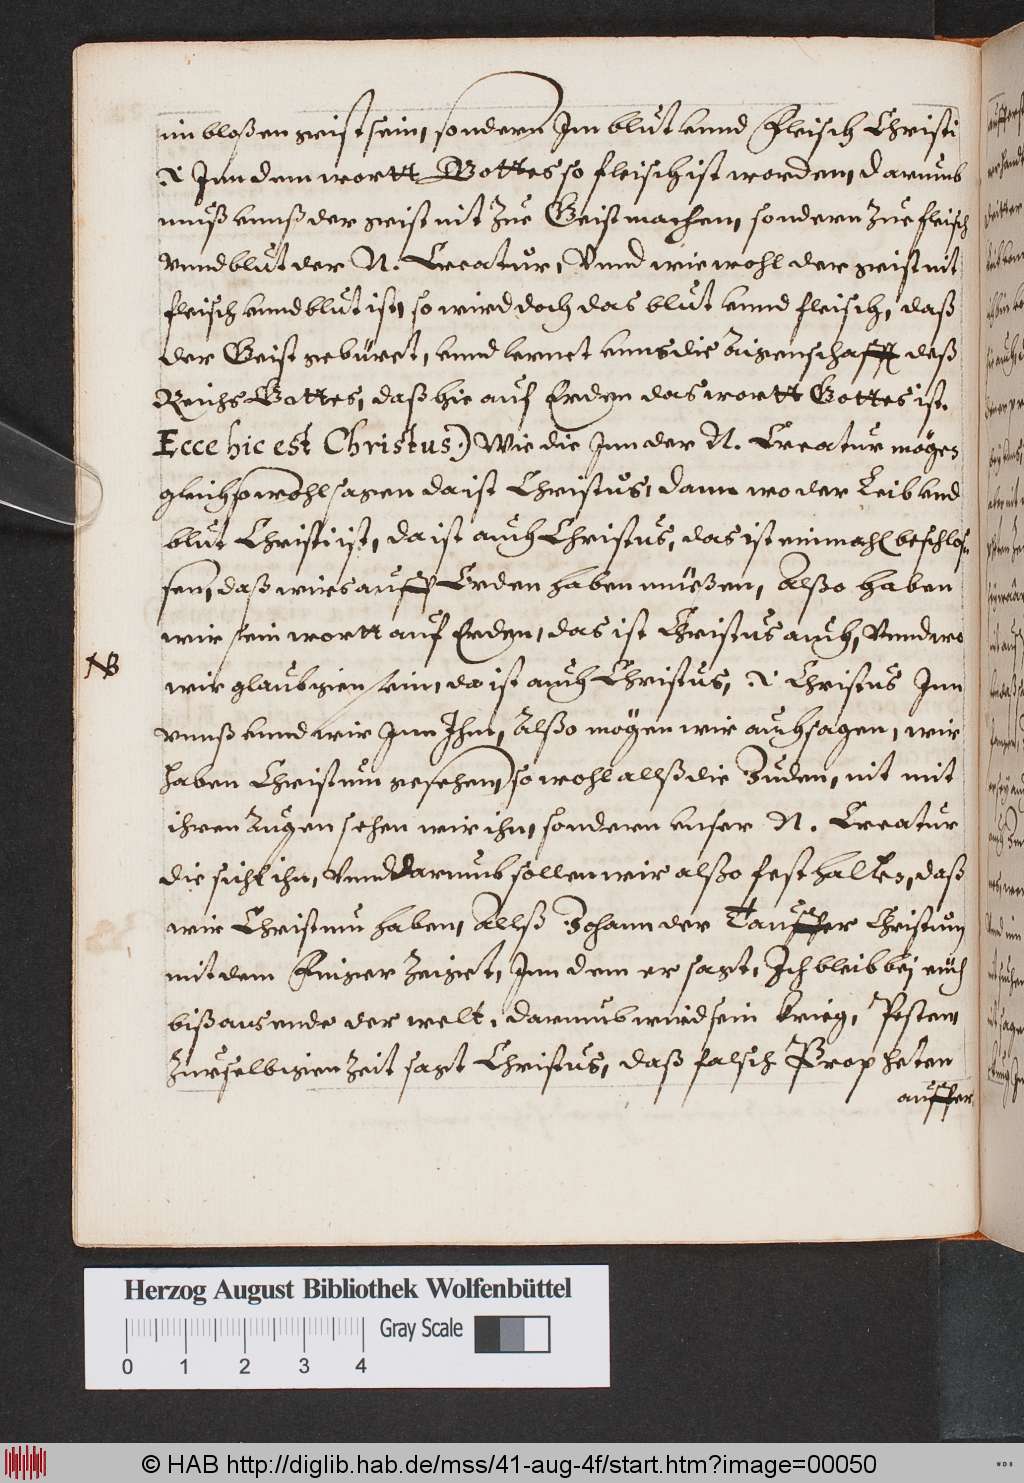 im bloßen geist sein, sondern Im blut vnnd Fleisch Christi
Inn dem wortt Gottes so fleisch ist worden, darumb
muß vnnß der geist nit Zue Geist machen, sondern Zue fleisch
vnnd blut der N. Creatur, Vnnd wiewohl der geist nit
fleisch vnnd blut ist, so wird doch das blut vnnd fleisch, daß
der Geist gebüret, vnnd lernet vnns die Aigenschafft deß
Reichs Gottes, daß hie auf Erden das wortt Gottes ist.
Ecce hic est Christus) Wie die Inn der N. Creatur mögen
gleich so wohl sagen da ist Christus, dann wo der Leib vnd
blut Christi ist, da ist auch Christus, das ist einmahl beschlos-
sen, daß wirs auff Erden haben müeßen, Alßo haben
wir sein wortt auf Erden, das ist Christus auch, Vnnd wo
NB
wir glaubigen sein, da ist auch Christus, Christus Inn
vnnß vnnd wir Inn Ihm, Alßo mögen wir auch sagen, wir
haben Christum gesehen, so wohl allß die Juden, nit mit
ihren Augen sehen wir ihn, sondern vnser N. Creatur
die sicht ihn, Vnnd darumb sollen wir alßo fest halten, daß
wir Christum haben, Allß Johann der Tauffer Christum
mit dem Finger Zeiget, Inn dem er sagt, Ich bleib bej euch
biß ans ende der welt, darumb wird sein krieg, Pesten,
Zur selbigen Zeit sagt Christus, daß falsch Propheten
auffer
Herzog August Bibliothek Wolfenbüttel
Gray Scale
0 1 2 3 4
© HAB http://diglib.hab.de/mss/41-aug-4f/start.htm?image=00050